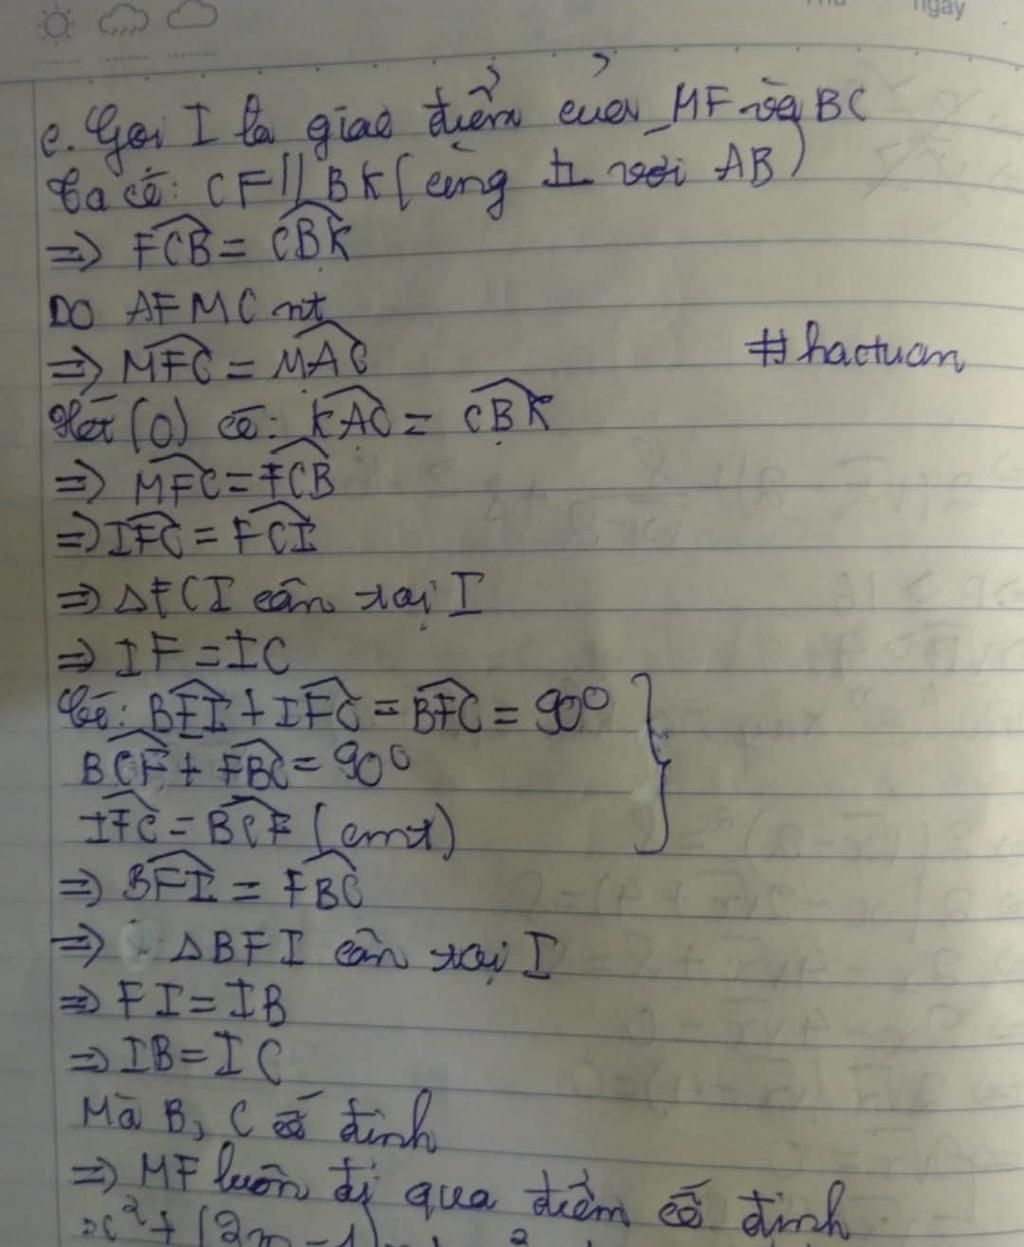 ngày
c. Gọi I là giao điểm của MF và BC
Ta có: CF // BK (cùng ⊥ với AB)
=> \widehat{FCB} = \widehat{CBK}
DO AFMC nt
=> \widehat{MFC} = \widehat{MAC}
#hactuan
Xét (O) có: \widehat{KAC} = \widehat{CBK}
=> \widehat{MFC} = \widehat{FCB}
=> \widehat{IFC} = \widehat{FCI}
=> ΔFCI cân tại I
=> IF = IC
Có: \widehat{BFI} + \widehat{IFC} = \widehat{BFC} = 90°
\widehat{BCF} + \widehat{FBC} = 90°
\widehat{IFC} = \widehat{BCF} (cmt)
=> \widehat{BFI} = \widehat{FBC}
=> ΔBFI cân tại I
=> FI = IB
=> IB = IC
Mà B, C cố định
=> MF luôn đi qua điểm cố định
x² + (2m - 1)